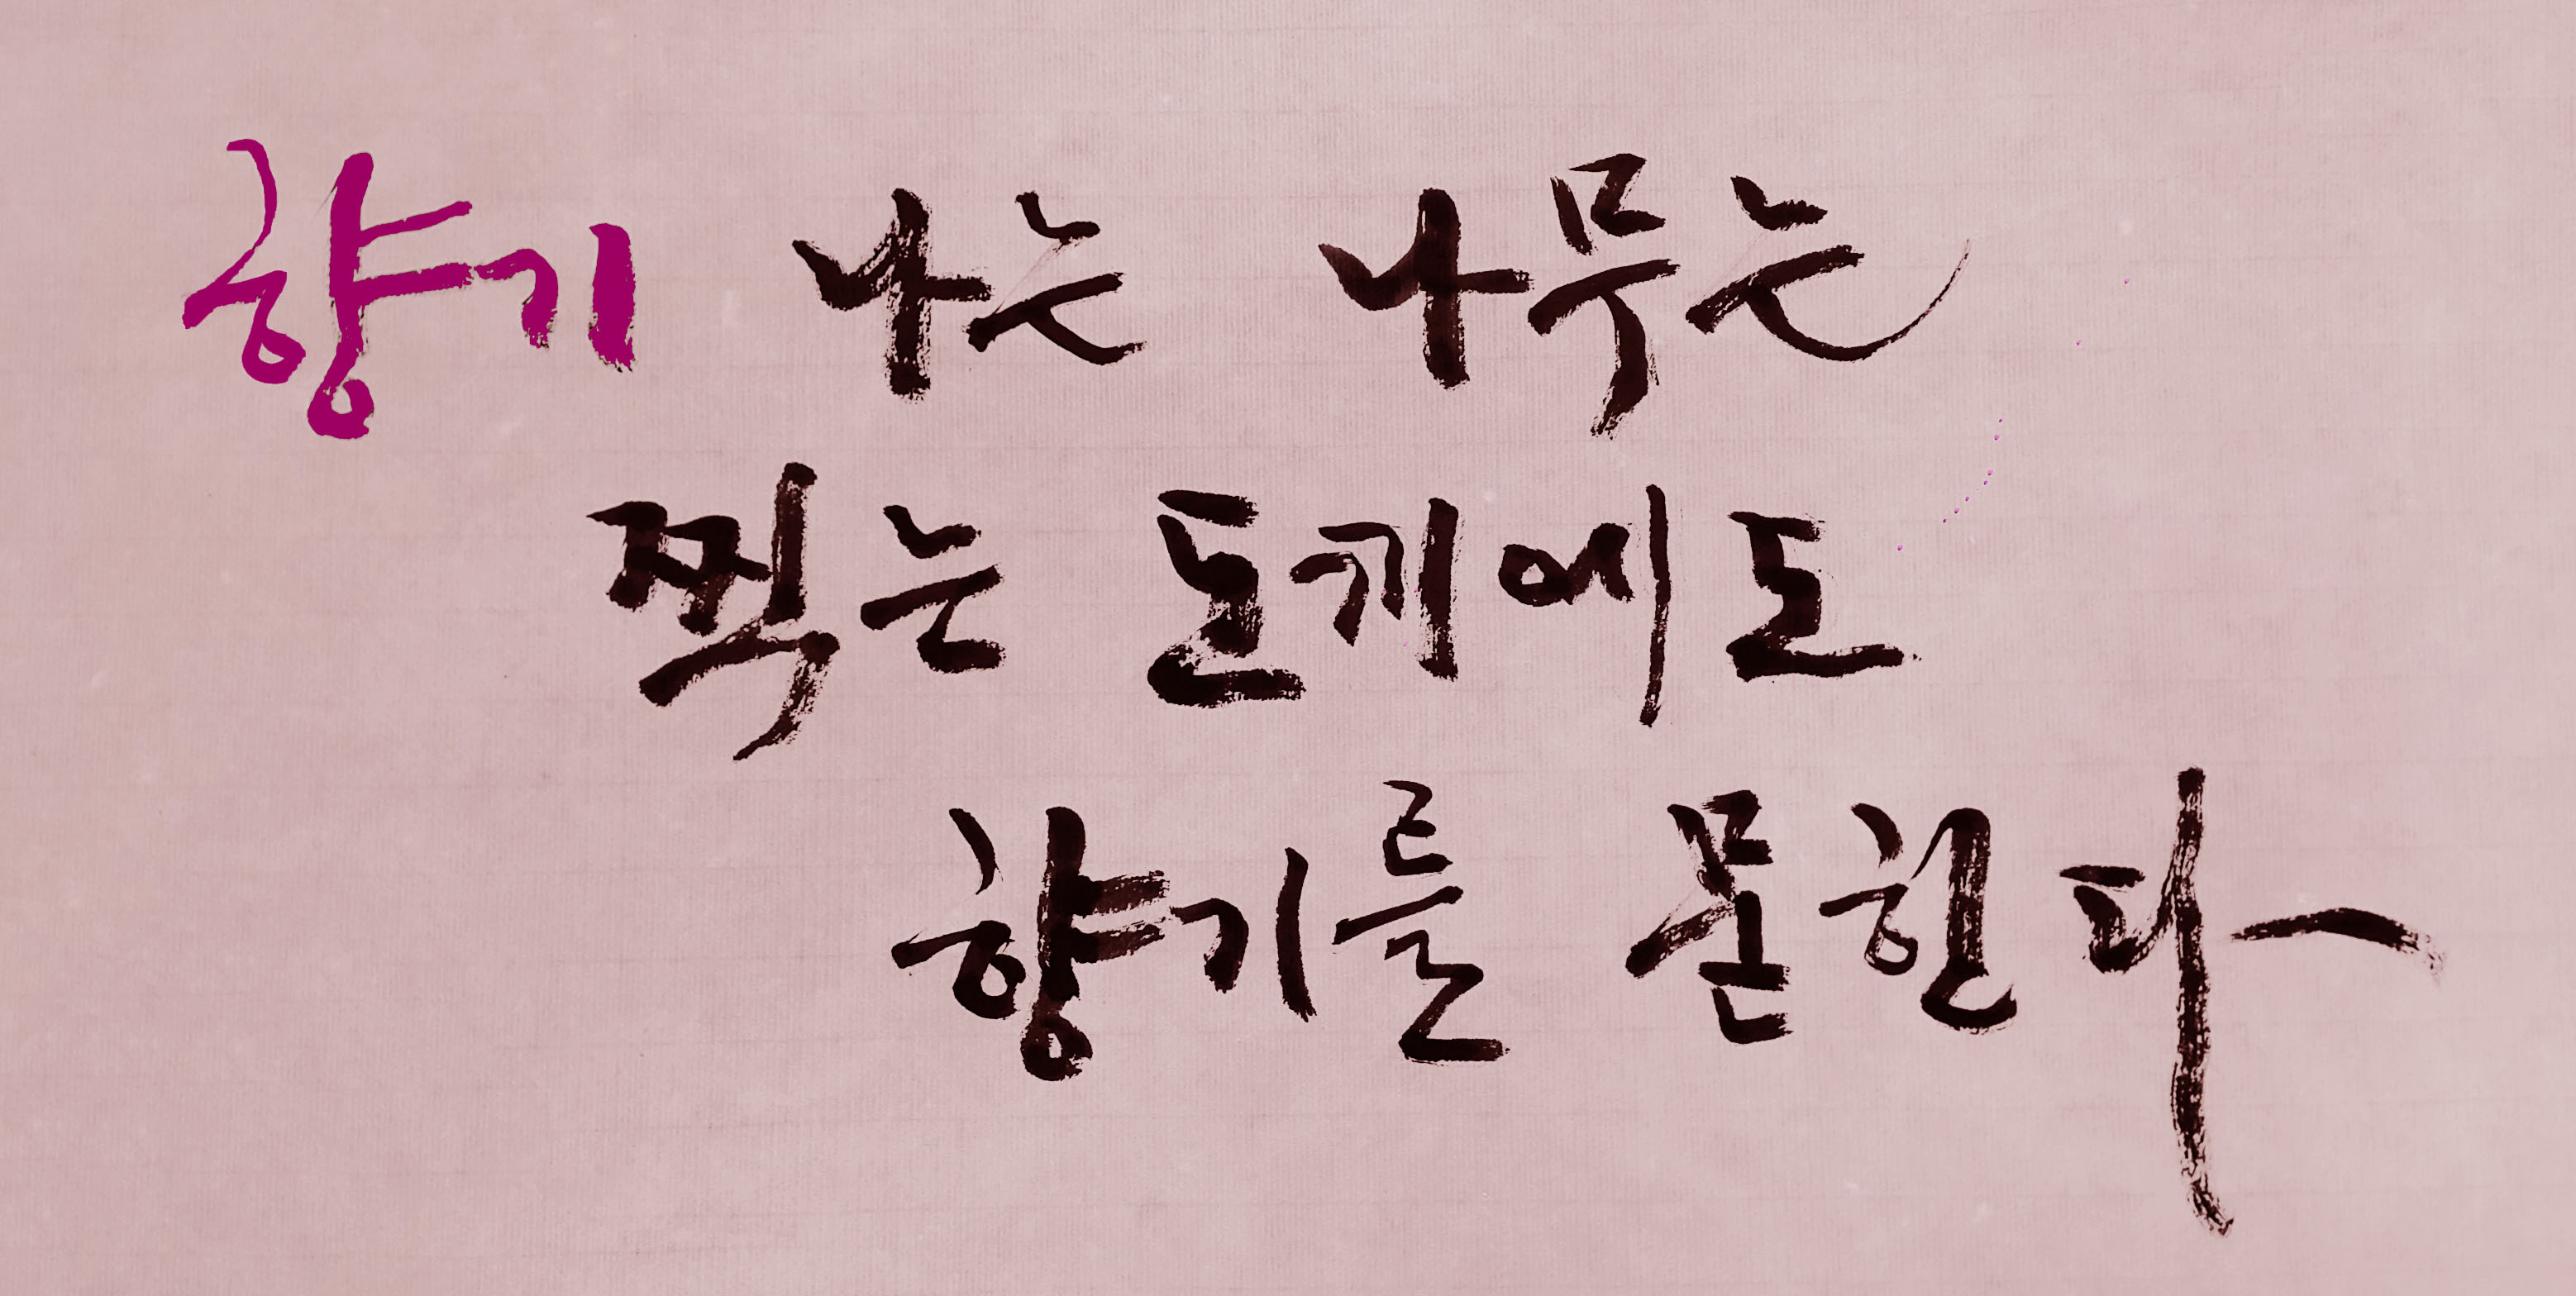 향기 나는 나무는
찍는 도끼에도
향기를 묻힌다